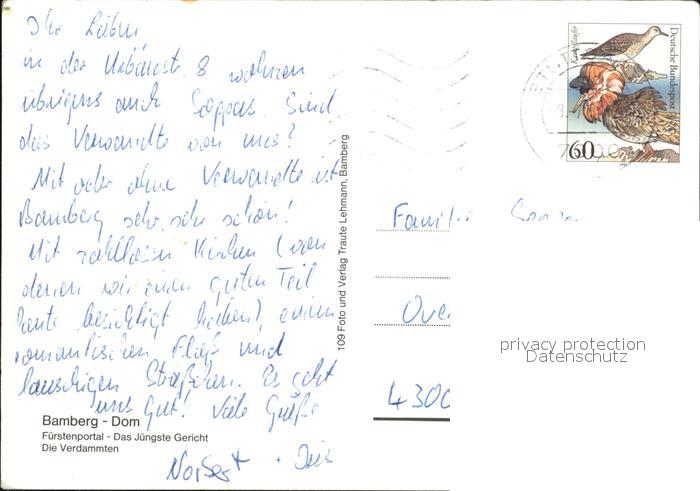 Ihr Lieben
in der Urbanstr. 8 wohnen
übrigens auch Soppas. Sind
das Verwandte von uns?
Mit oder ohne Verwandte ist
Bamberg sehr, sehr schön!
Mit zahllosen Kirchen (von
denen wir einen guten Teil
heute besichtigt haben), einem
romantischen Fluß und
lauschigen Sträßchen. Es geht
uns gut! Viele Grüße
Norbert + Iris
Bamberg - Dom
Fürstenportal - Das Jüngste Gericht
Die Verdammten
109 Foto und Verlag Traute Lehmann, Bamberg
Kampfläufer
Deutsche Bundespost
60
Famili
Ove
4300
privacy protection
Datenschutz